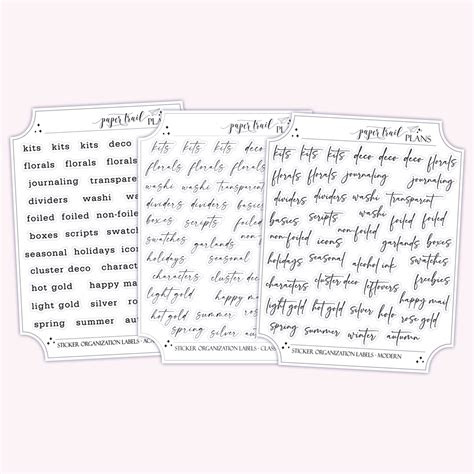 kits kits kits deco
florals florals florals
journaling transpare
dividers washi wa
foiled foiled non-foiled
boxes scripts swatch
seasonal holidays icons
cluster deco characte
hot gold happy mail
light gold silver ro
spring summer aut
STICKER ORGANIZATION LABELS -
paper trail
kits kits kits deco
florals florals florals
washi washi transparent
dividers dividers basics
boxes scripts
swatches garlands non-foiled
holidays seasonal
characters cluster deco
light gold happy mail
hot gold silver rose
spring silver autumn
STICKER ORGANIZATION LABELS - CLASS
paper trail
PLANS
kits kits kits deco deco deco florals
florals florals journaling journaling
dividers dividers washi transparent
basics scripts non-foiled foiled foiled
non-foiled icons garlands boxes
holidays seasonal alcohol ink swatches
characters cluster deco leftovers freebies
happy mail
light gold hot gold silver holo rose gold
spring summer winter autumn
STICKER ORGANIZATION LABELS - MODERN